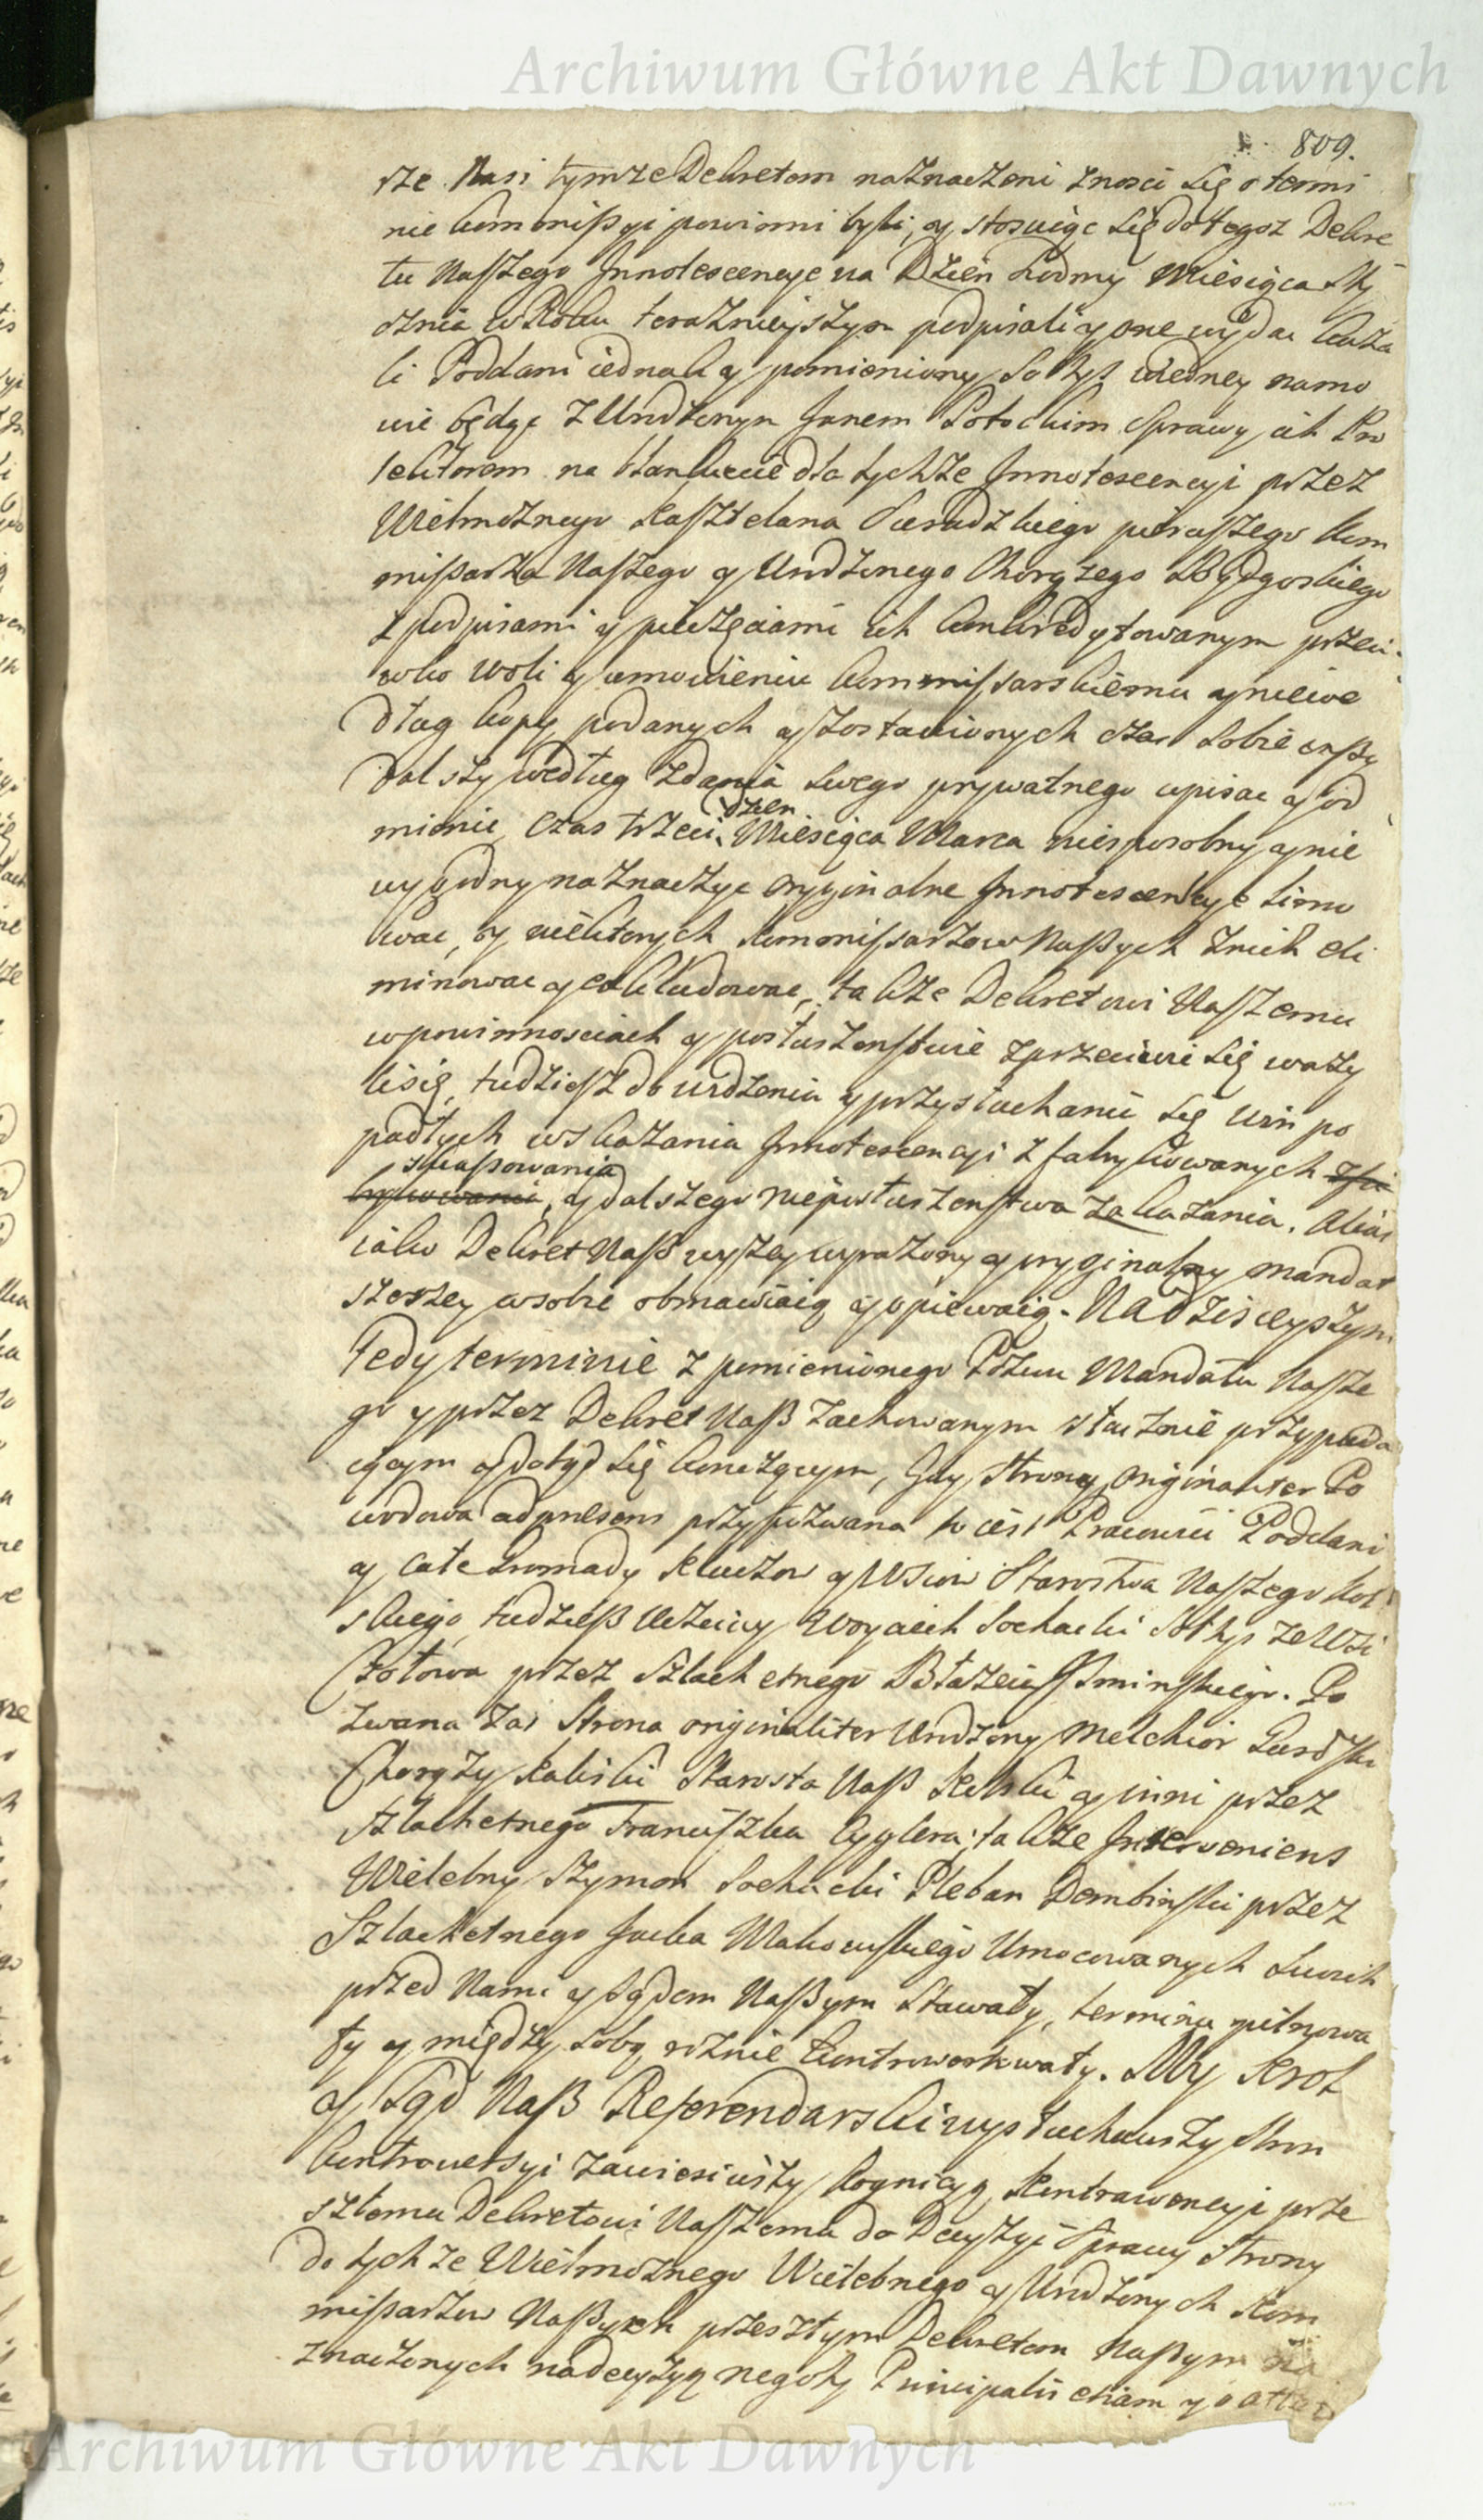 Archiwum Główne Akt Dawnych
809.
rze Nasi tymze Dekretem naznaczeni znosci się o termi
nie kommissyi powinni byli, y stosuiąc się do tegoz Dekre
tu Naszego Innotescencye na Dzien siodmy Miesiąca Sty
cznia w Roku teraznieyszym podpisali y one wydac kaza
li Poddani iednak y pomieniony Sołtys w iedney namo
wie będąc z Urodzonym Janem Potockim Sprawy ich Pro
tektorem na blankiecie dla tychze Innotescencyi przez
Wielmoznego Kasztelana Sieradzkiego pierwszego Kom
missarza Naszego y Urodzonego Chorązego Bydgoskiego
z podpisami y pieczęciami ich konkredytowanym przeci
wko woli y umowieniu kommissarskiemu y niewe
dług kopy podanych y zostawionych czas sobie
dalszy według zdania swego prywatnego wpisac y od
mienic, czas trzeci dzien Miesiąca Marca niesposobny y nie
wygodny naznaczyc oryginalne Innotescencye
wac, y niektorych Kommissarzow Naszych z nich eli
minowac y exkludowac, takze Dekretowi Naszemu
w powinnosciach y posłuszenstwie zprzeciwic się wazy
li się, tudziesz do widzenia y przysłuchania się win po
padłych wskazania Innotescencyi zfabrykowanych
skassowania, y dalszego nieposłuszenstwa zakazania. Alias
iako Dekret Nasz wyzey wyrazony y oryginalny mandat
szerzey w sobie obmawiaią y opiewaią. Na dzisieyszym
tedy terminie z pomienionego Pozwu Mandatu Nasze
go y przez Dekret Nasz zachowanym słusznie przypada
iącym y dotąd się kączącym, gdy Strony originaliter Po
wodowa ad praesens przypozwana to iest Pracowici Poddani
y całe Gromady Kluczow y Wsiow Starostwa Naszego Kol
skiego, tudziesz Uczciwy Woyciech Sochacki Sołtys ze Wsi
Czołowa przez Szlachetnego Błazeia Sminskiego. Po
zwana zas Strona originaliter Urodzony Melchior Gurowski
Chorązy Kaliski Starosta Nasz Kolski y inni przez
Szlachetnego Franciszka Cyglera; takze Interveniens
Wielebny Szymon Sochacki Pleban Dembinski przez
Szlachetnego Jacka Makowskiego Umocowanych swoich
przed Nami y Sądem Naszym stawały, terminu pilnowa
ły y między sobą roznie kontrowertowały. My Krol
y Sąd Nasz Referendarski wysłuchawszy Stron
kontrowersyi zawiesiwszy kognicyą, Kontrawencyi prze
szłemu Dekretowi Naszemu do Decyzyi Sprawy Strony
do tychze Wielmoznego Wielebnego y Urodzonych Kom
missarzow Naszych przeszłym Dekretem Naszym na
znaczonych na decyzyą negotii Principalis etiam y o
Archiwum Główne Akt Dawnych